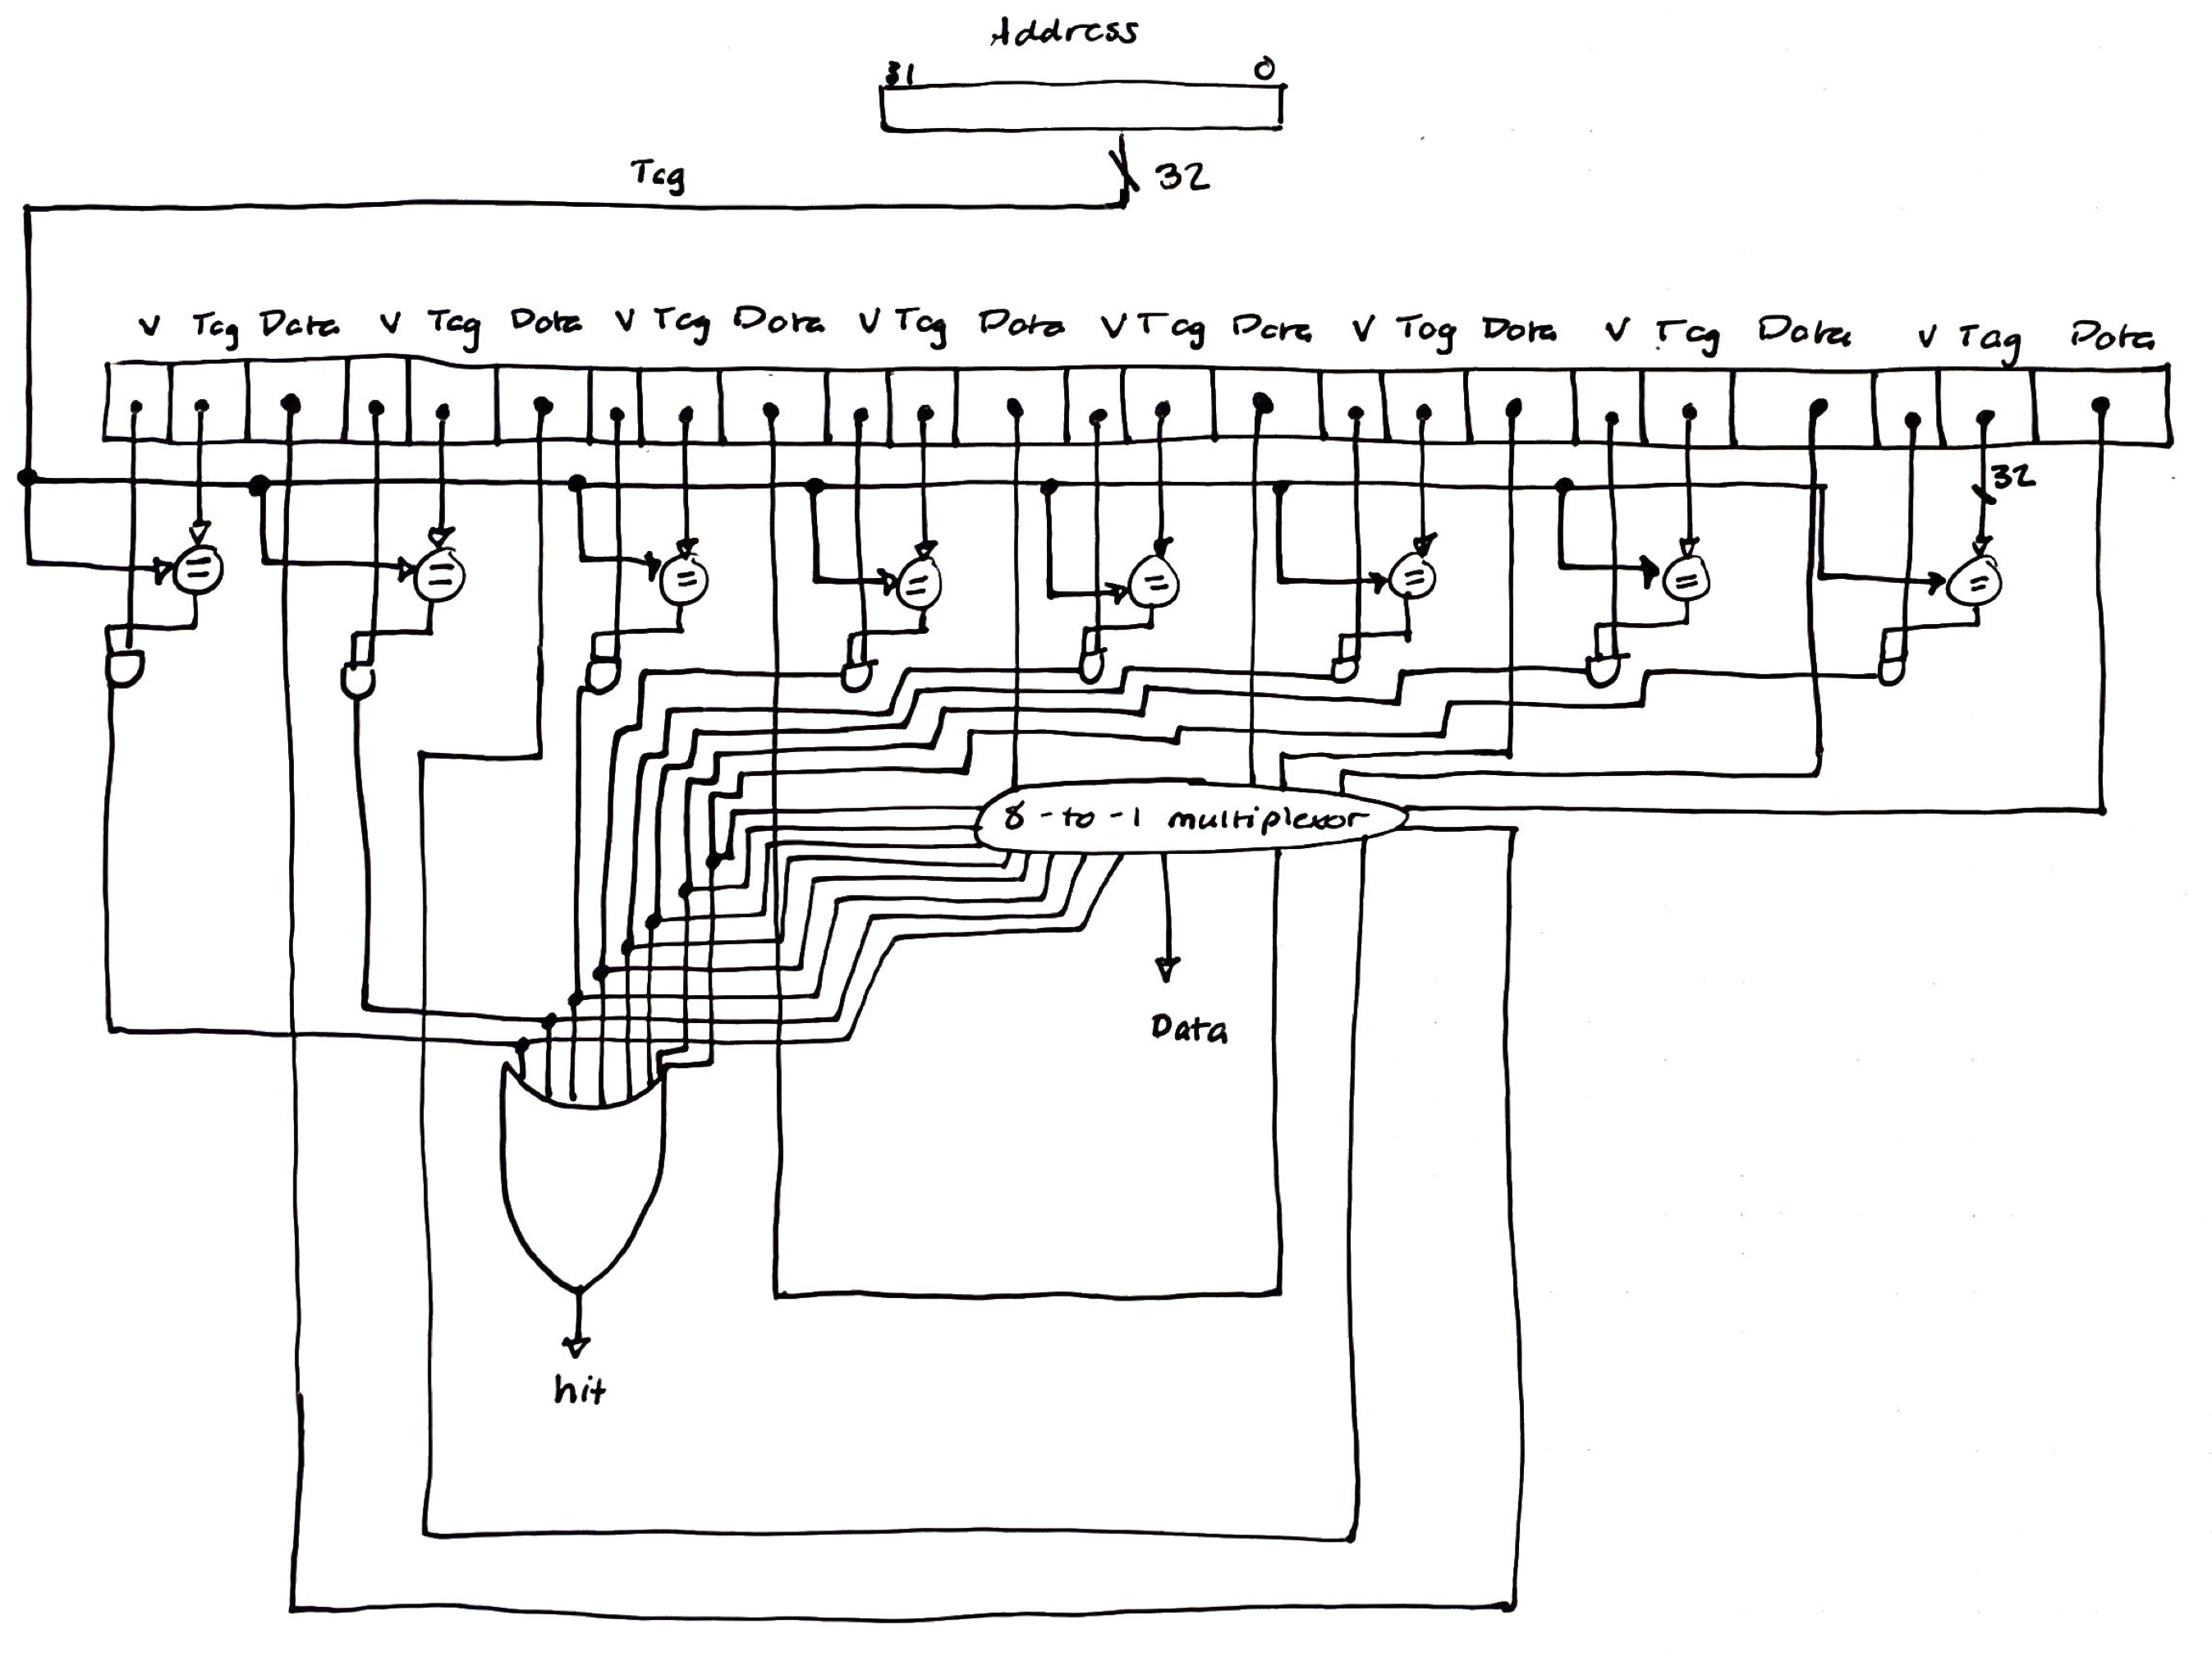 Address
31 0
Tag 32
V Tag Data V Tag Data V Tag Data V Tag Data V Tag Data V Tag Data V Tag Data V Tag Data
32
= = = = = = = =
8-to-1 multiplexor
Data
hit